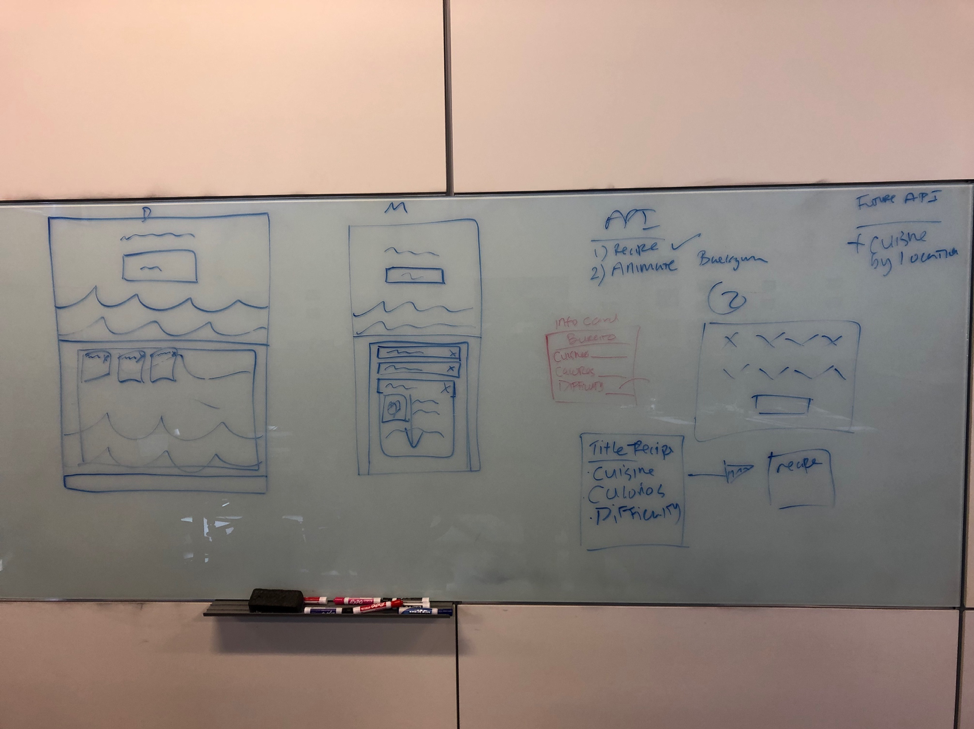 D
M
API
1) Recipe ✓
2) Animate
2
Future API
+ Cuisine
by location
info card
Burrito
Cuisine
Difficulty
Title Recipe
· Cuisine
· Difficulty
recipe